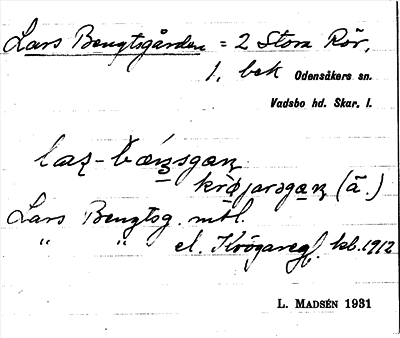 Lars Bengtsgården = 2 Stora Rör,
1, bek Odensåkers sn.
Vadsbo hd. Skar. l.
krø̀jarǝgaṉ (ä.)
Lars Bengtsg. mtl.
" " el. Krögaregf. kb. 1912
L. MADSÉN 1931